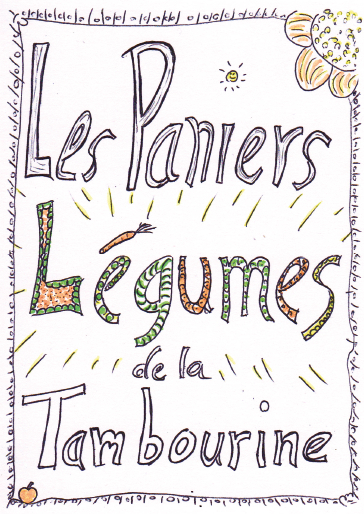 Les Paniers
Légumes
de la
Tambourine